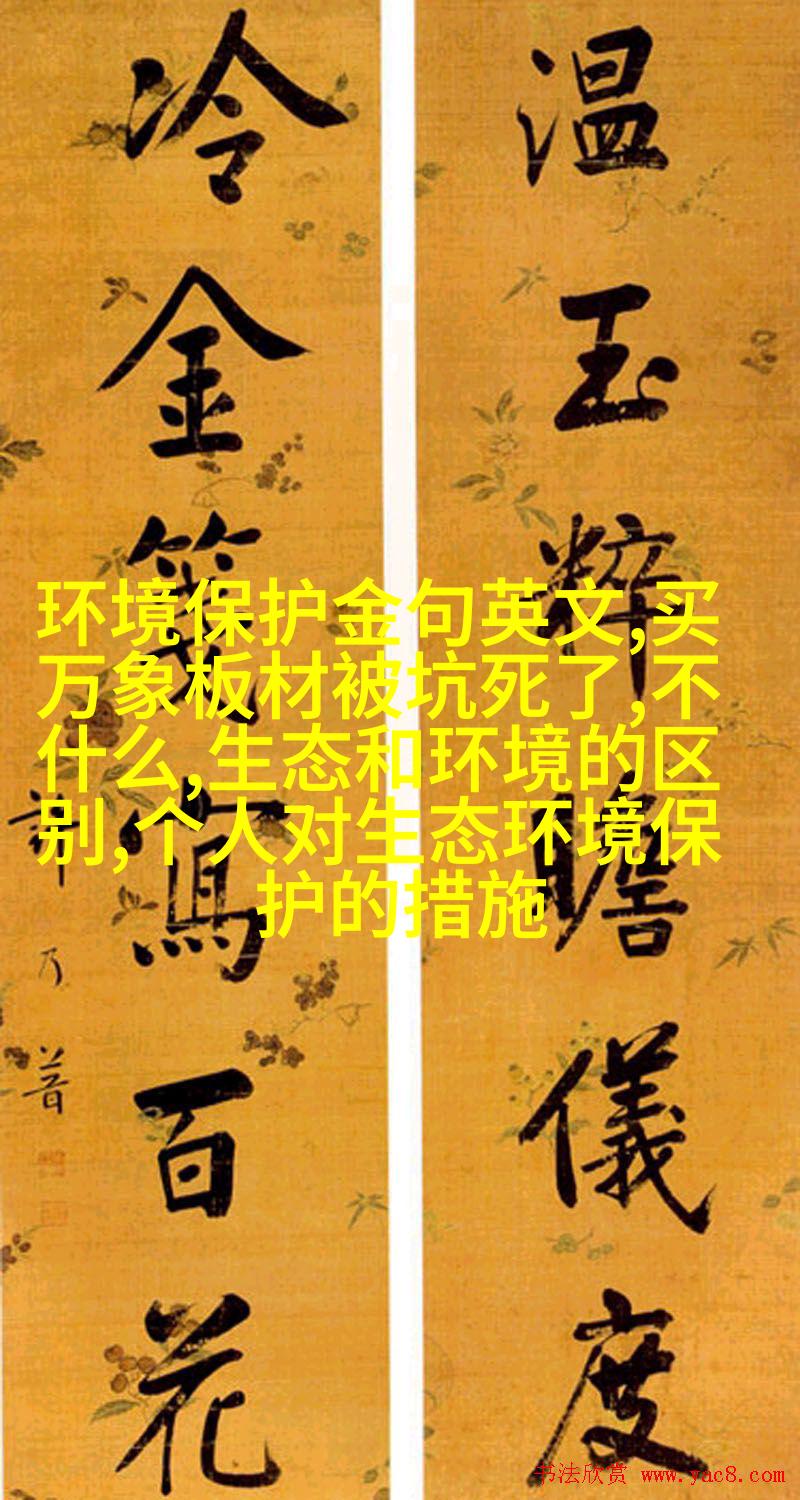 温玉粹瞻儀度
冷金箋寫百花
許乃普
环境保护金句英文,买
万象板材被坑死了,不
什么,生态和环境的区
别,个人对生态环境保
护的措施
书法欣赏 www.yac8.com